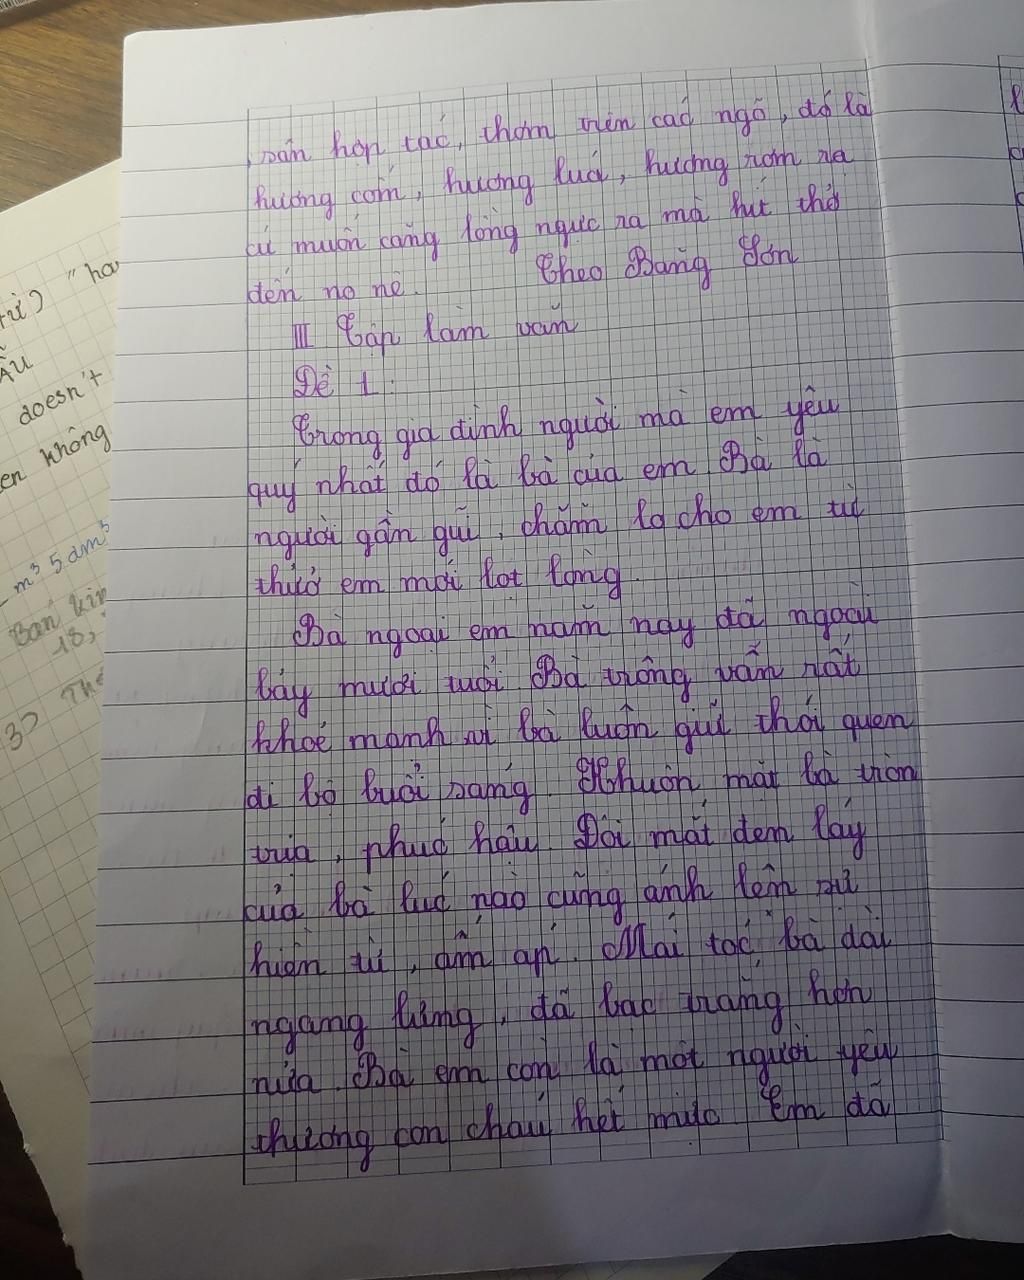 sân hợp tác, thơm trên các ngõ, đó là
hương cốm, hương lúa, hương rơm rạ
cứ muốn căng lồng ngực ra mà hít thở
đến no nê. Theo Băng Sơn
III Tập làm văn
Đề 1:
Trong gia đình người mà em yêu
quý nhất đó là bà của em. Bà là
người gần gũi, chăm lo cho em từ
thuở em mới lọt lòng.
Bà ngoại em năm nay đã ngoài
bảy mươi tuổi. Bà trông vẫn rất
khoẻ mạnh vì bà luôn giữ thói quen
đi bộ buổi sáng. Khuôn mặt bà tròn
trịa, phúc hậu. Đôi mắt đen láy
của bà lúc nào cũng ánh lên sự
hiền từ, ấm áp. Mái tóc bà dài
ngang lưng, đã bạc trắng hơn
nửa. Bà em còn là một người yêu
thương con cháu hết mực. Em đã
từ) "ha
doesn't
en không
m³ 5 dm³
Bán kín
18,
3)